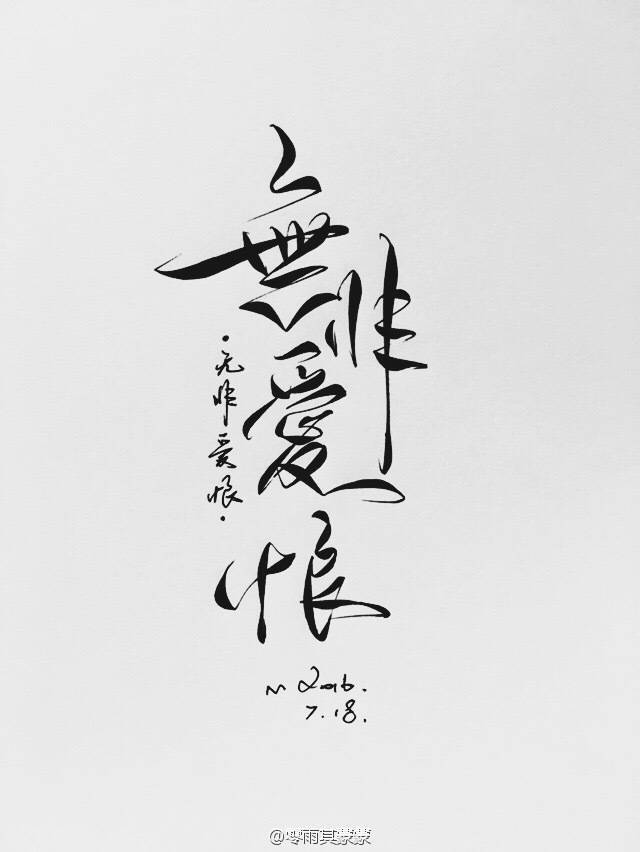 無非愛恨
·无非爱恨·
м 2016.
7.18.
@零雨其蒙蒙